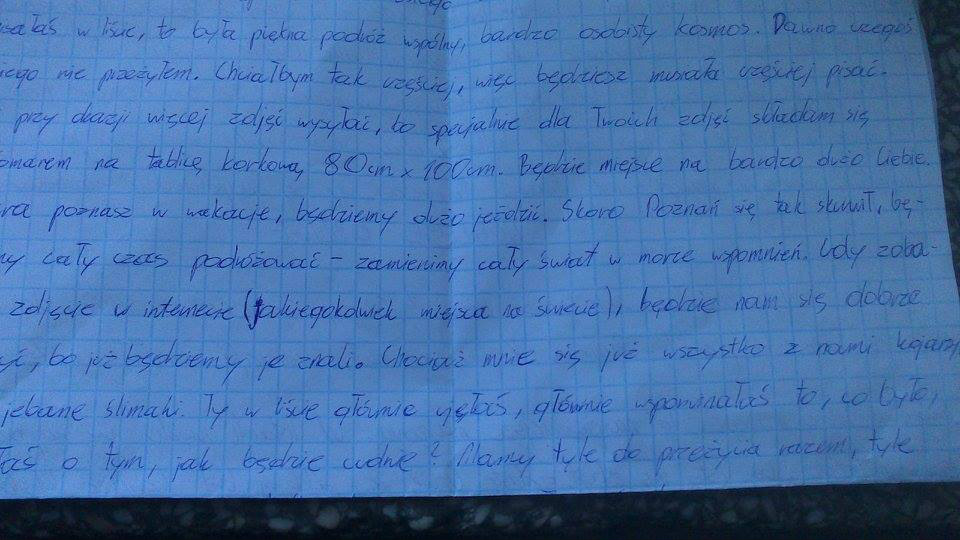 w liście, to była piękna podróż wspólny, bardzo osobisty kosmos. Dawno czegoś
nie przeżyłem. Chciałbym tak częściej, więc będziesz musiała częściej pisać.
przy okazji więcej zdjęć wysyłać, to specjalnie dla Twoich zdjęć składam się
na tablicę korkową 80cm x 100cm. Będzie miejsce na bardzo dużo Ciebie.
poznasz w wakacje, będziemy dużo jeździć. Skoro Poznań się tak skurwił, bę-
cały czas podróżować - zamienimy cały świat w morze wspomnień. Gdy zoba-
zdjęcie w internecie (jakiegokolwiek miejsca na świecie), będzie nam się dobrze
bo już będziemy je znali. Chociaż mnie się już wszystko z nami kojarzy
jebane ślimaki. Ty w liście głównie ujęłaś, głównie wspominałaś to, co było,
o tym, jak będzie cudnie? Mamy tyle do przeżycia razem, tyle